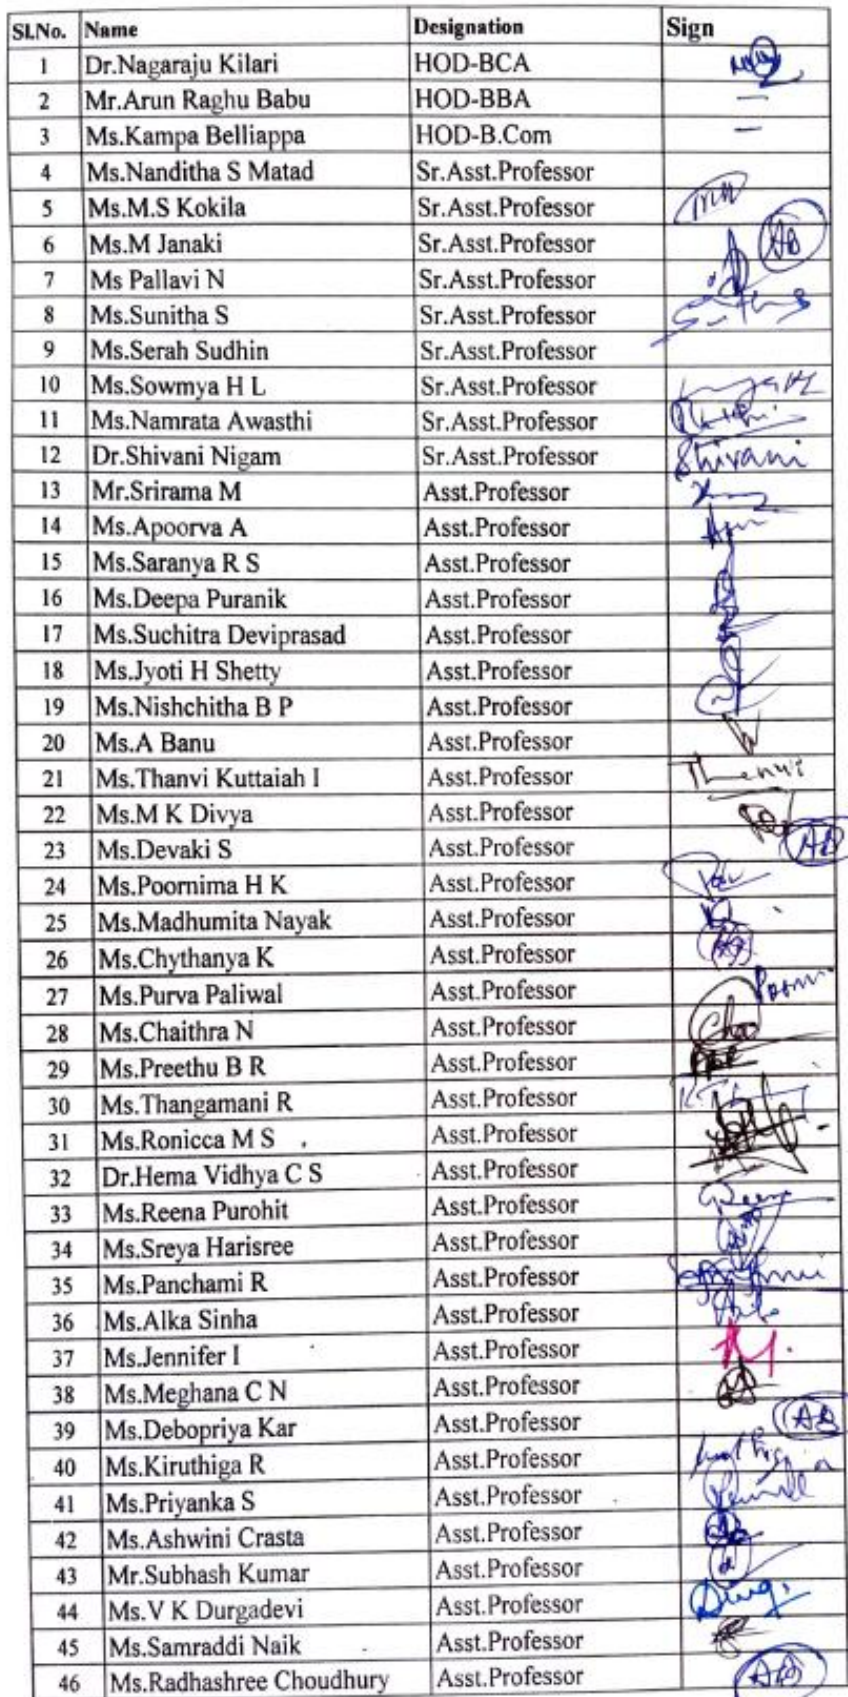 Sl.No. Name Designation Sign
1 Dr.Nagaraju Kilari HOD-BCA
2 Mr.Arun Raghu Babu HOD-BBA —
3 Ms.Kampa Belliappa HOD-B.Com —
4 Ms.Nanditha S Matad Sr.Asst.Professor
5 Ms.M.S Kokila Sr.Asst.Professor
6 Ms.M Janaki Sr.Asst.Professor AB
7 Ms Pallavi N Sr.Asst.Professor
8 Ms.Sunitha S Sr.Asst.Professor
9 Ms.Serah Sudhin Sr.Asst.Professor
10 Ms.Sowmya H L Sr.Asst.Professor
11 Ms.Namrata Awasthi Sr.Asst.Professor
12 Dr.Shivani Nigam Sr.Asst.Professor Shivani
13 Mr.Srirama M Asst.Professor
14 Ms.Apoorva A Asst.Professor
15 Ms.Saranya R S Asst.Professor
16 Ms.Deepa Puranik Asst.Professor
17 Ms.Suchitra Deviprasad Asst.Professor
18 Ms.Jyoti H Shetty Asst.Professor
19 Ms.Nishchitha B P Asst.Professor
20 Ms.A Banu Asst.Professor
21 Ms.Thanvi Kuttaiah I Asst.Professor Thanvi
22 Ms.M K Divya Asst.Professor
23 Ms.Devaki S Asst.Professor AB
24 Ms.Poornima H K Asst.Professor
25 Ms.Madhumita Nayak Asst.Professor
26 Ms.Chythanya K Asst.Professor
27 Ms.Purva Paliwal Asst.Professor
28 Ms.Chaithra N Asst.Professor
29 Ms.Preethu B R Asst.Professor
30 Ms.Thangamani R Asst.Professor
31 Ms.Ronicca M S Asst.Professor
32 Dr.Hema Vidhya C S Asst.Professor
33 Ms.Reena Purohit Asst.Professor
34 Ms.Sreya Harisree Asst.Professor
35 Ms.Panchami R Asst.Professor
36 Ms.Alka Sinha Asst.Professor
37 Ms.Jennifer I Asst.Professor
38 Ms.Meghana C N Asst.Professor
39 Ms.Debopriya Kar Asst.Professor AB
40 Ms.Kiruthiga R Asst.Professor
41 Ms.Priyanka S Asst.Professor
42 Ms.Ashwini Crasta Asst.Professor
43 Mr.Subhash Kumar Asst.Professor
44 Ms.V K Durgadevi Asst.Professor
45 Ms.Samraddi Naik Asst.Professor
46 Ms.Radhashree Choudhury Asst.Professor AB